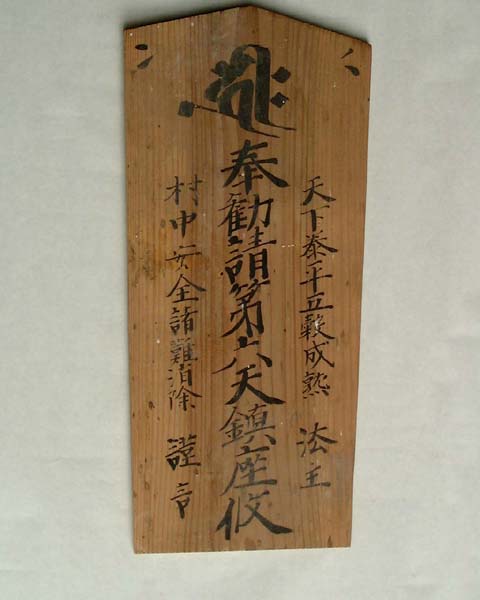 天下泰平五穀成熟 法主
奉勧請第六天鎮座攸
村中安全諸難消除 謹言